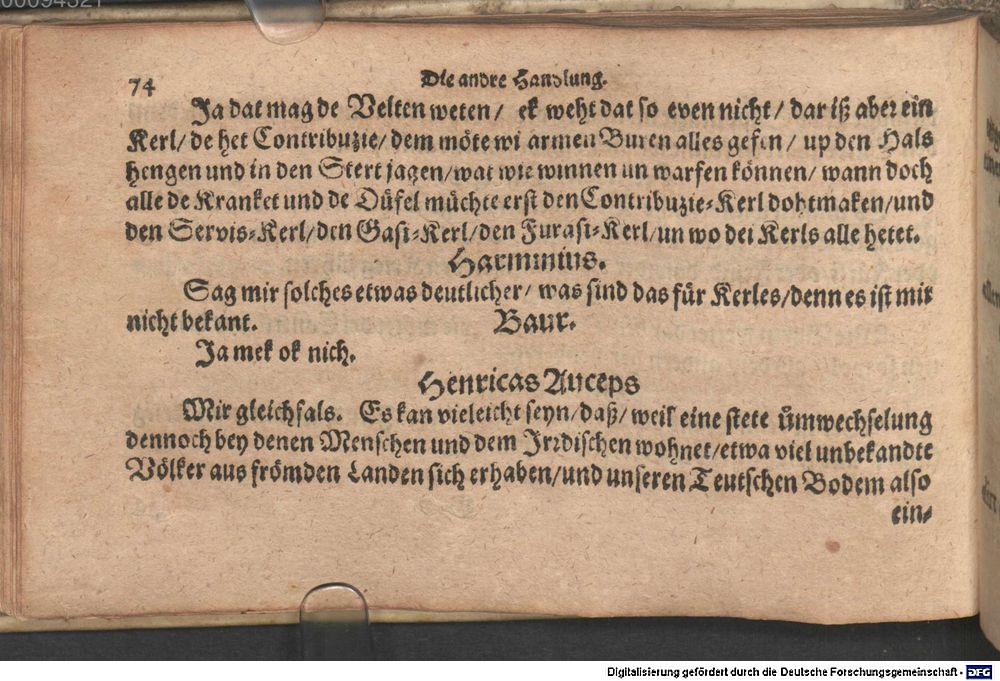 00094521
74
Die andre Handlung.
Ja dat mag de Velten weten/ ek weht dat so even nicht/ dar iß aber ein
Kerl/ de het Contribuzie/ dem möte wi armen Buren alles gefen/ up den Hals
hengen und in den Stert jagen/ wat wie winnen un warfen können/ wann doch
alle de Kranket und de Düfel müchte erst den Contribuzie-Kerl dohtmaken/ und
den Servis-Kerl/ den Gast-Kerl/ den Furast-Kerl/ un wo dei Kerls alle hetet.
Harminius.
Sag mir solches etwas deutlicher/ was sind das für Kerles/ denn es ist mir
nicht bekant. Baur.
Ja mek ok nich.
Henricas Auceps
Mir gleichfals. Es kan vieleicht seyn/ daß/ weil eine stete ümwechselung
dennoch bey denen Menschen und dem Irrdischen wohnet/ etwa viel unbekandte
Völker aus frömden Landen sich erhaben/ und unseren Teutschen Bodem also
ein-
Digitalisierung gefördert durch die Deutsche Forschungsgemeinschaft - DFG